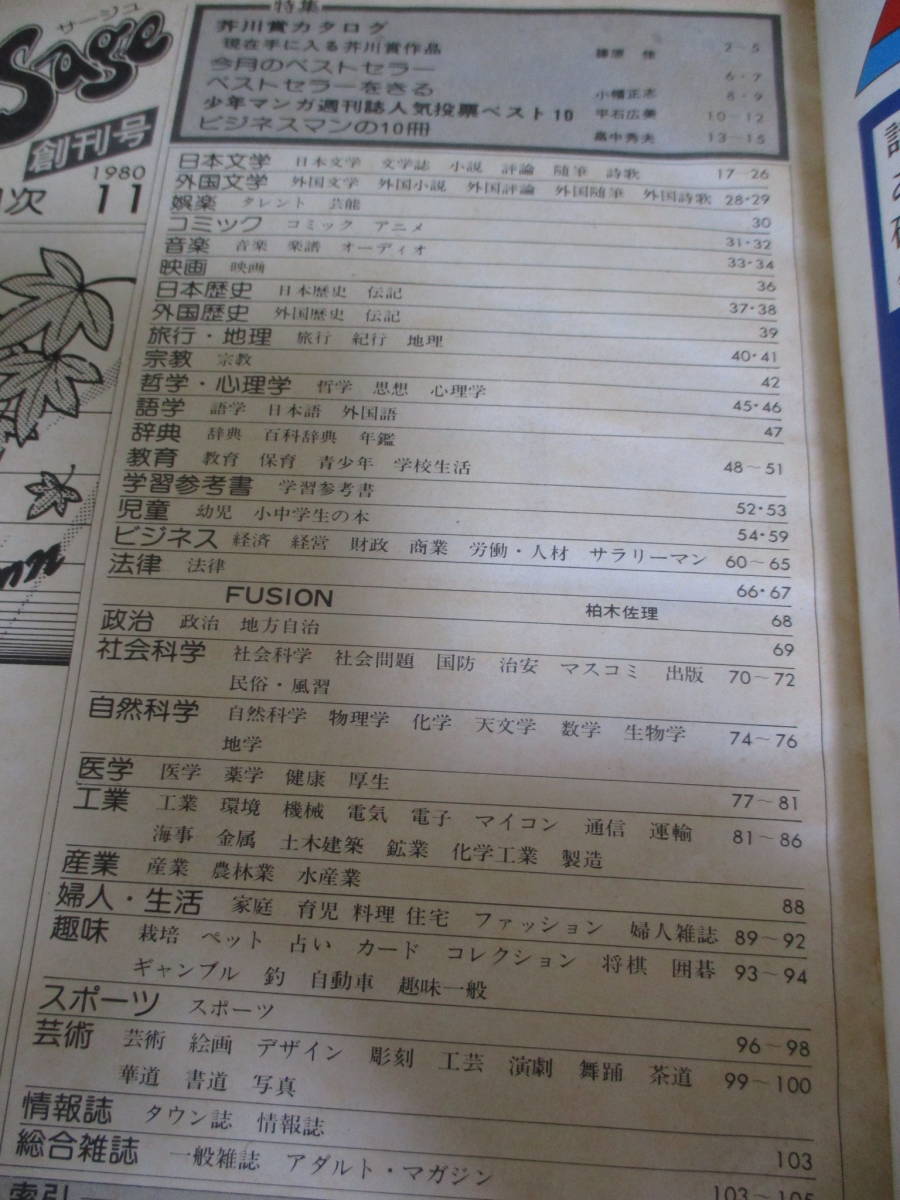 サージュ
Sage
創刊号
1980
目次 11
特集
芥川賞カタログ
現在手に入る芥川賞作品 2～5
今月のベストセラー 6・7
ベストセラーをきる 小幡正志 8・9
少年マンガ週刊誌人気投票ベスト10 平石広美 10～12
ビジネスマンの10冊 畠中秀夫 13～15
日本文学 日本文学 文学誌 小説 評論 随筆 詩歌 17～26
外国文学 外国文学 外国小説 外国評論 外国随筆 外国詩歌 28・29
娯楽 タレント 芸能 30
コミック コミック アニメ 31・32
音楽 音楽 楽譜 オーディオ 33・34
映画 映画 36
日本歴史 日本歴史 伝記 37・38
外国歴史 外国歴史 伝記 39
旅行・地理 旅行 紀行 地理 40・41
宗教 宗教 42
哲学・心理学 哲学 思想 心理学 45・46
語学 語学 日本語 外国語 47
辞典 辞典 百科辞典 年鑑
教育 教育 保育 青少年 学校生活 48～51
学習参考書 学習参考書 52・53
児童 幼児 小中学生の本 54・59
ビジネス 経済 経営 財政 商業 労働・人材 サラリーマン 60～65
法律 法律 66・67
FUSION 柏木佐理 68
政治 政治 地方自治 69
社会科学 社会科学 社会問題 国防 治安 マスコミ 出版 70～72
民俗・風習
自然科学 自然科学 物理学 化学 天文学 数学 生物学 74～76
地学
医学 医学 薬学 健康 厚生 77～81
工業 工業 環境 機械 電気 電子 マイコン 通信 運輸 81～86
海事 金属 土木建築 鉱業 化学工業 製造
産業 産業 農林業 水産業 88
婦人・生活 家庭 育児 料理 住宅 ファッション 婦人雑誌 89～92
趣味 栽培 ペット 占い カード コレクション 将棋 囲碁 93～94
ギャンブル 釣 自動車 趣味一般
スポーツ スポーツ 96～98
芸術 芸術 絵画 デザイン 彫刻 工芸 演劇 舞踊 茶道 99～100
華道 書道 写真
情報誌 タウン誌 情報誌 103
総合雑誌 一般雑誌 アダルト・マガジン 103～105
索引